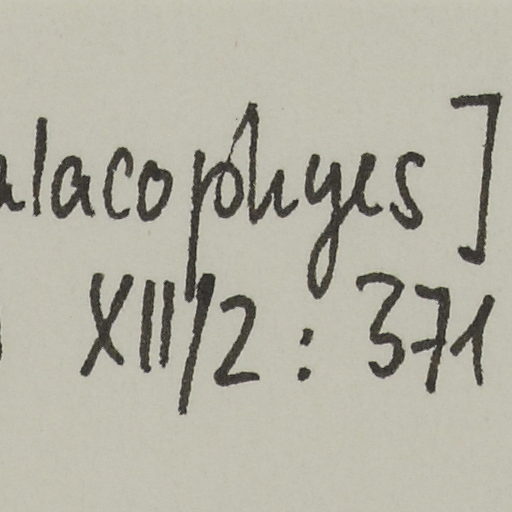 alacophyes]
XII/2: 371